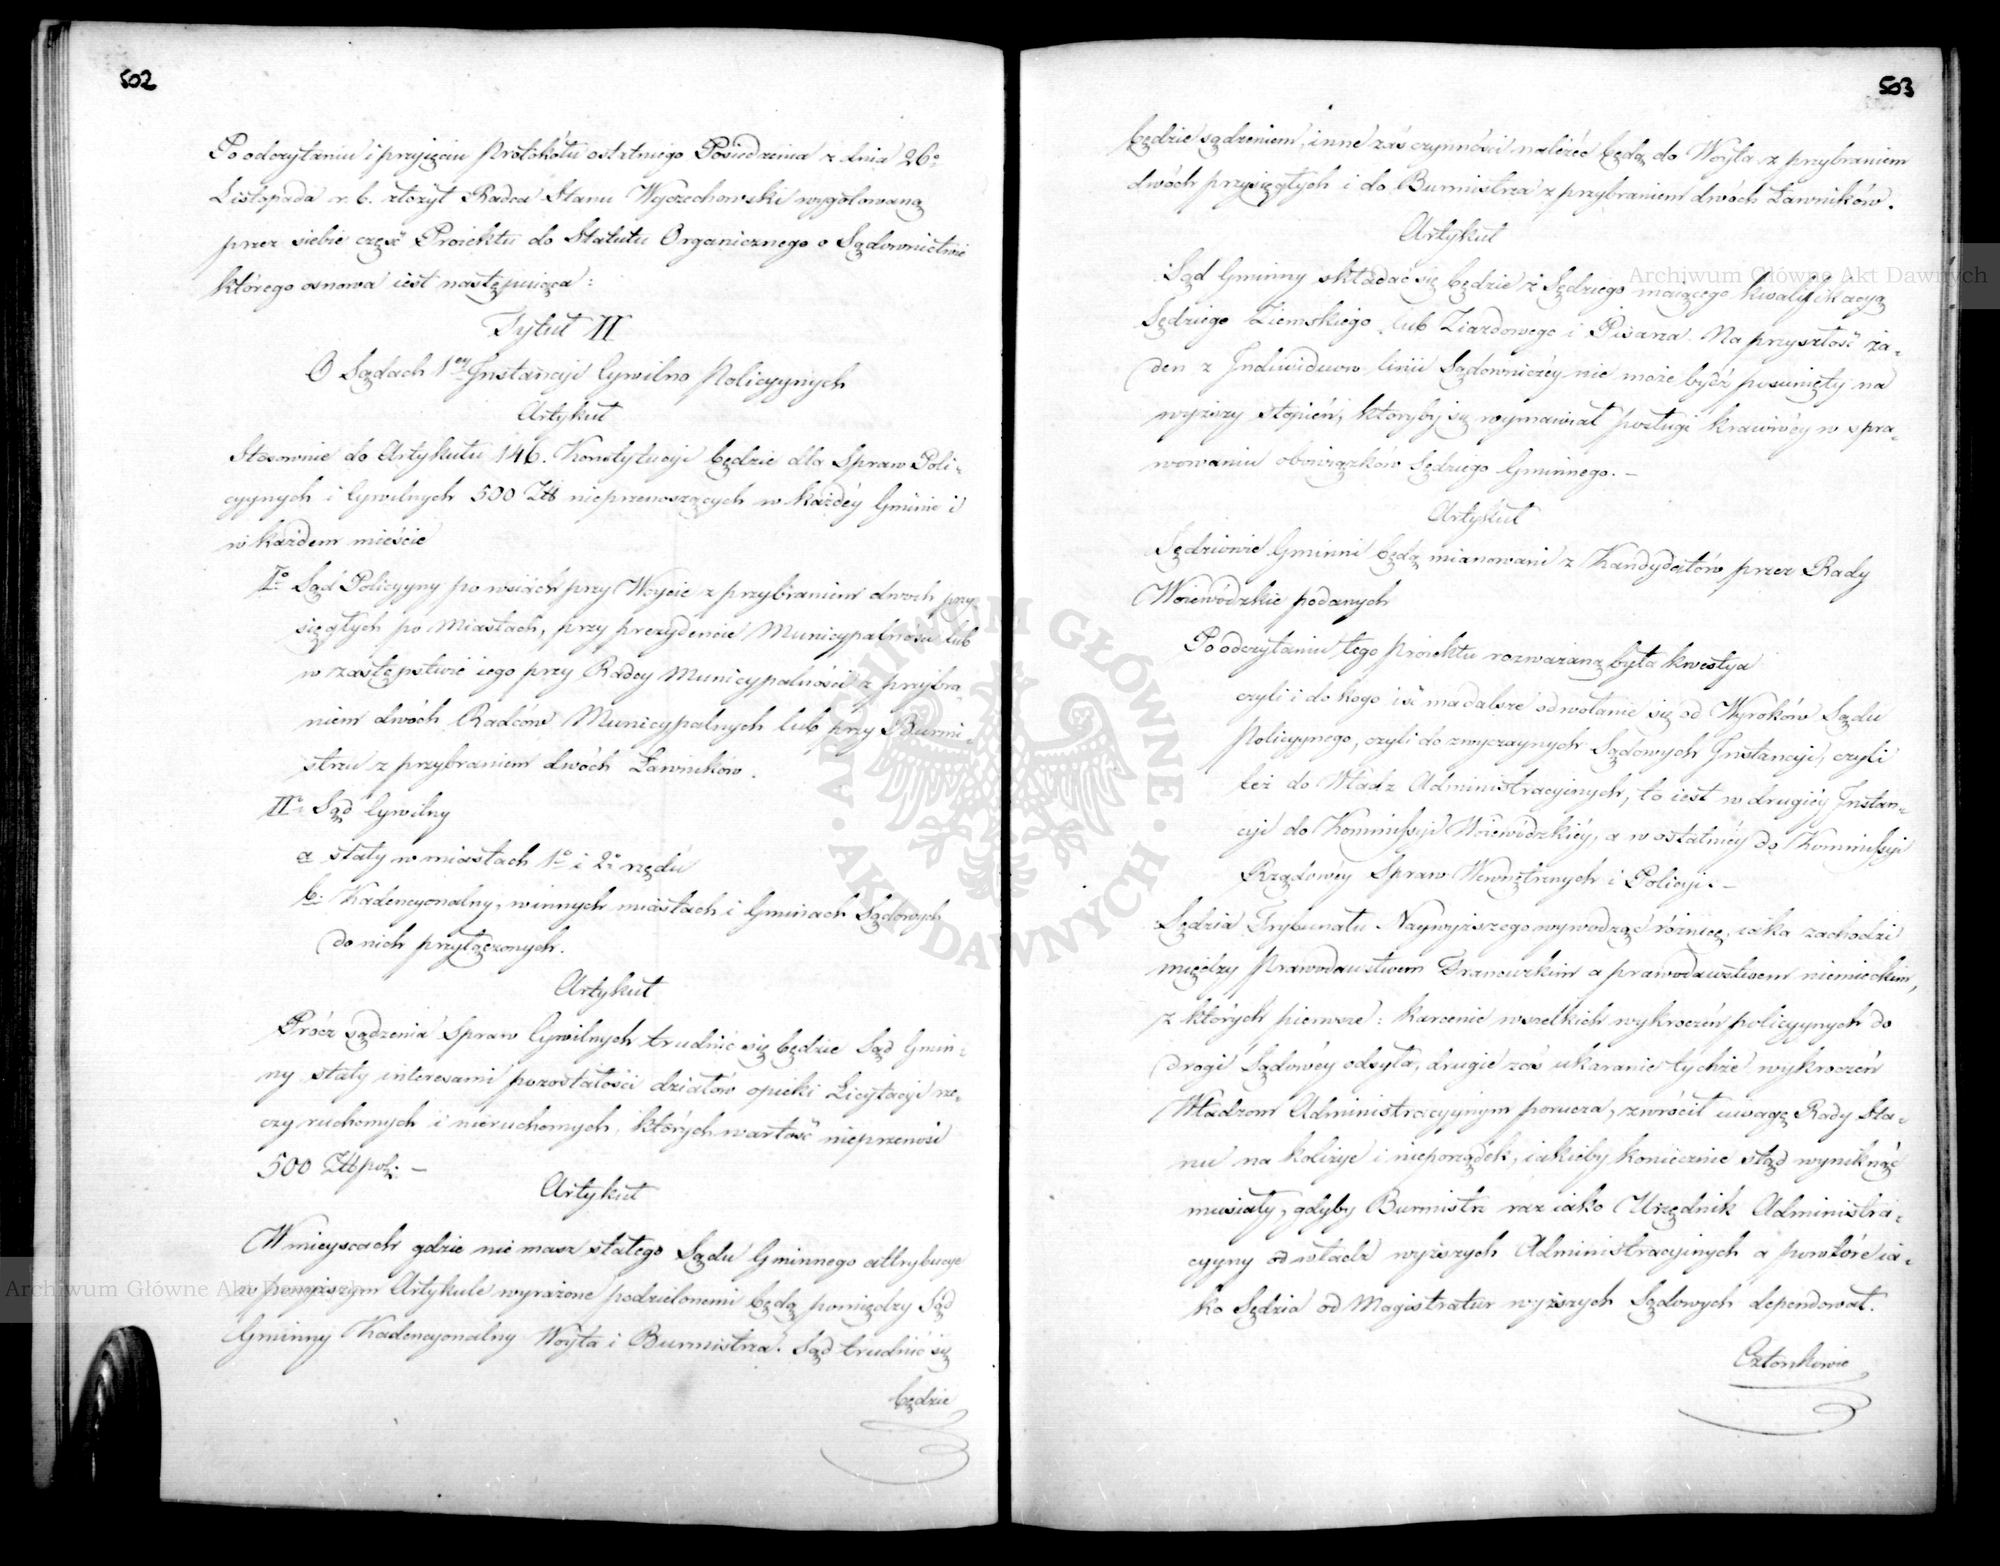 502
Po odczytaniu i przyięciu Protokółu ostatniego Posiedzenia z dnia 26º
Listopada r. b. złożył Radca Stanu Woyczechowski wygotowaną
przez siebie część Proiektu do Statutu Organicznego o Sądownictwie
którego osnowa iest następuiąca:
Tytuł II
O Sądach 1ey Instancyi Cywilno Policyynych
Artykuł
Stosownie do Artykułu 146. Konstytucyi będzie dla Spraw Poli-
cyynych i Cywilnych 500 Zł nieprzenoszących w każdéy Gminie i
w każdem mieście
Iº Sąd Policyyny po wsiach przy Woycie z przybraniem dwoch przy
sięgłych po Miastach, przy prezydencie Municypalności lub
w zastępstwie iego przy Radcy Municypalności z przybra-
niem dwóch Radców Municypalnych lub przy Burmi-
strzu z przybraniem dwóch Ławników.
IIº Sąd Cywilny
a stały w miastach 1º i 2º rzędu
b. Kadencyonalny, w innych miastach i Gminach Sądowych
do nich przyłączonych.
Artykuł
Prócz sądzenia Spraw Cywilnych trudnić się będzie Sąd Gmin-
ny stały interesami pozostałości działów opieki Licytacyi rze-
czy ruchomych i nieruchomych, których wartość nieprzenosi
500 Zł pol: —
Artykuł
W mieyscach gdzie nie masz stałego Sądu Gminnego attrybucye
w powyższym Artykule wyrażone podzielonemi będą pomiędzy Sąd
Gminny Kadencyonalny Woyta i Burmistrza. Sąd trudnić się
będzie
503
będzie sądzeniem, inne zaś czynności należeć będą do Woyta z przybraniem
dwóch przysięgłych i do Burmistrza z przybraniem dwóch Ławników.
Artykuł
Sąd Gminny składać się będzie z Sędziego maiącego kwalifikacyą
Sędziego Ziemskiego lub Ziazdowego i Pisarza. Na przyszłość ża-
den z Indiwiduow linii Sądowniczéy nie może bydź posunięty na
wyższy stopień, któryby się wymawiał posługi w spra-
wowaniu obowiązków Sędziego Gminnego. —
Artykuł
Sędziowie Gminni będą mianowani z Kandydatów przez Rady
Woiewódzkie podanych
Po odczytaniu tego Proiektu rozważaną była kwestya
czyli i do kogo iść ma dalsze odwołanie się od Wyroków Sądu
Policyynego, czyli do zwyczaynych Sądowych Instancyi, czyli
też do Władz Administracyinych, to iest w drugiéy Instan-
cyi do Kommissyi Woiewódzkiéy, a w ostatniéy do Kommissyi
Rządowéy Spraw Wewnętrznych i Policyi. —
Sędzia Trybunału Naywyższego wywodząc różnicę, iaka zachodzi
między Prawodawstwem Francuzkim a prawodawstwem niemieckim,
z których pierwsze: karcenie wszelkich wykroczeń policyynych do
drogi Sądowéy odsyła, drugie zaś ukaranie tychże wykroczeń
Władzom Administracyynym porucza, zwrócił uwagę Rady Sta-
nu na kolizye i nieporządek, iakieby koniecznie stąd wyniknąć
musiały, gdyby Burmistrz raz iako Urzędnik Administra-
cyyny od władz wyższych Administracyinych a powtóre ia-
ko Sędzia od Magistratur wyższych Sądowych dependował.
Członkowie
Archiwum Główne Akt Dawnych
Archiwum Główne Akt Dawnych
ARCHIWUM GŁÓWNE · AKT DAWNYCH ·